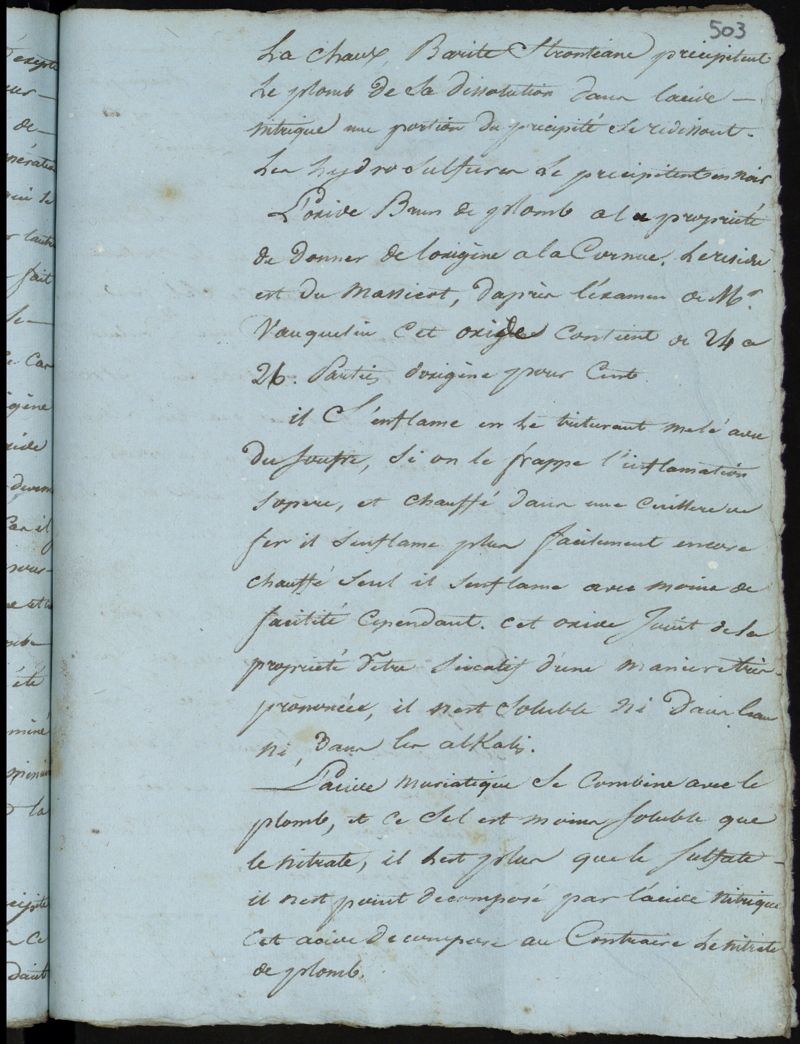 503
La chaux, Barite Strontiane precipitent
Le plomb de sa dissolution dans lacide —
nitrique une portion du précipité se redissout.
Les hydrosulfures le precipitent en noir
L'oxide Brun de plomb a la propriété
de donner de loxigène a la Cornue. Le residu
est du Massicot, daprès l'éxamen de Mr.
Vauquelin cet oxide contient de 24 a
26. Parties doxigène pour Cent.
il S'enflame en Le triturant melé avec
Du Soufre, Si on le frappe l'inflamation
sopere, et chauffé dans une cuillere de
fer il Senflame plus facilement encore
chauffé Seul il Senflame avec moins de
facilité Cependant. cet oxide Jouit de la
propriété d'etre Sicatif d'une maniere très-
prononcée, il nest Soluble Ni Dans leau
Ni, Dans les alkalis.
L'acide muriatique Se Combine avec le
plomb, et ce Sel est moins Soluble que
le nitrate, il lest plus que le Sulfate —
il nest point décomposé par l'acide Nitrique
cet acide Decompose au Contraire Le nitrate
de plomb.
de —
fait
été
miné
la
ce